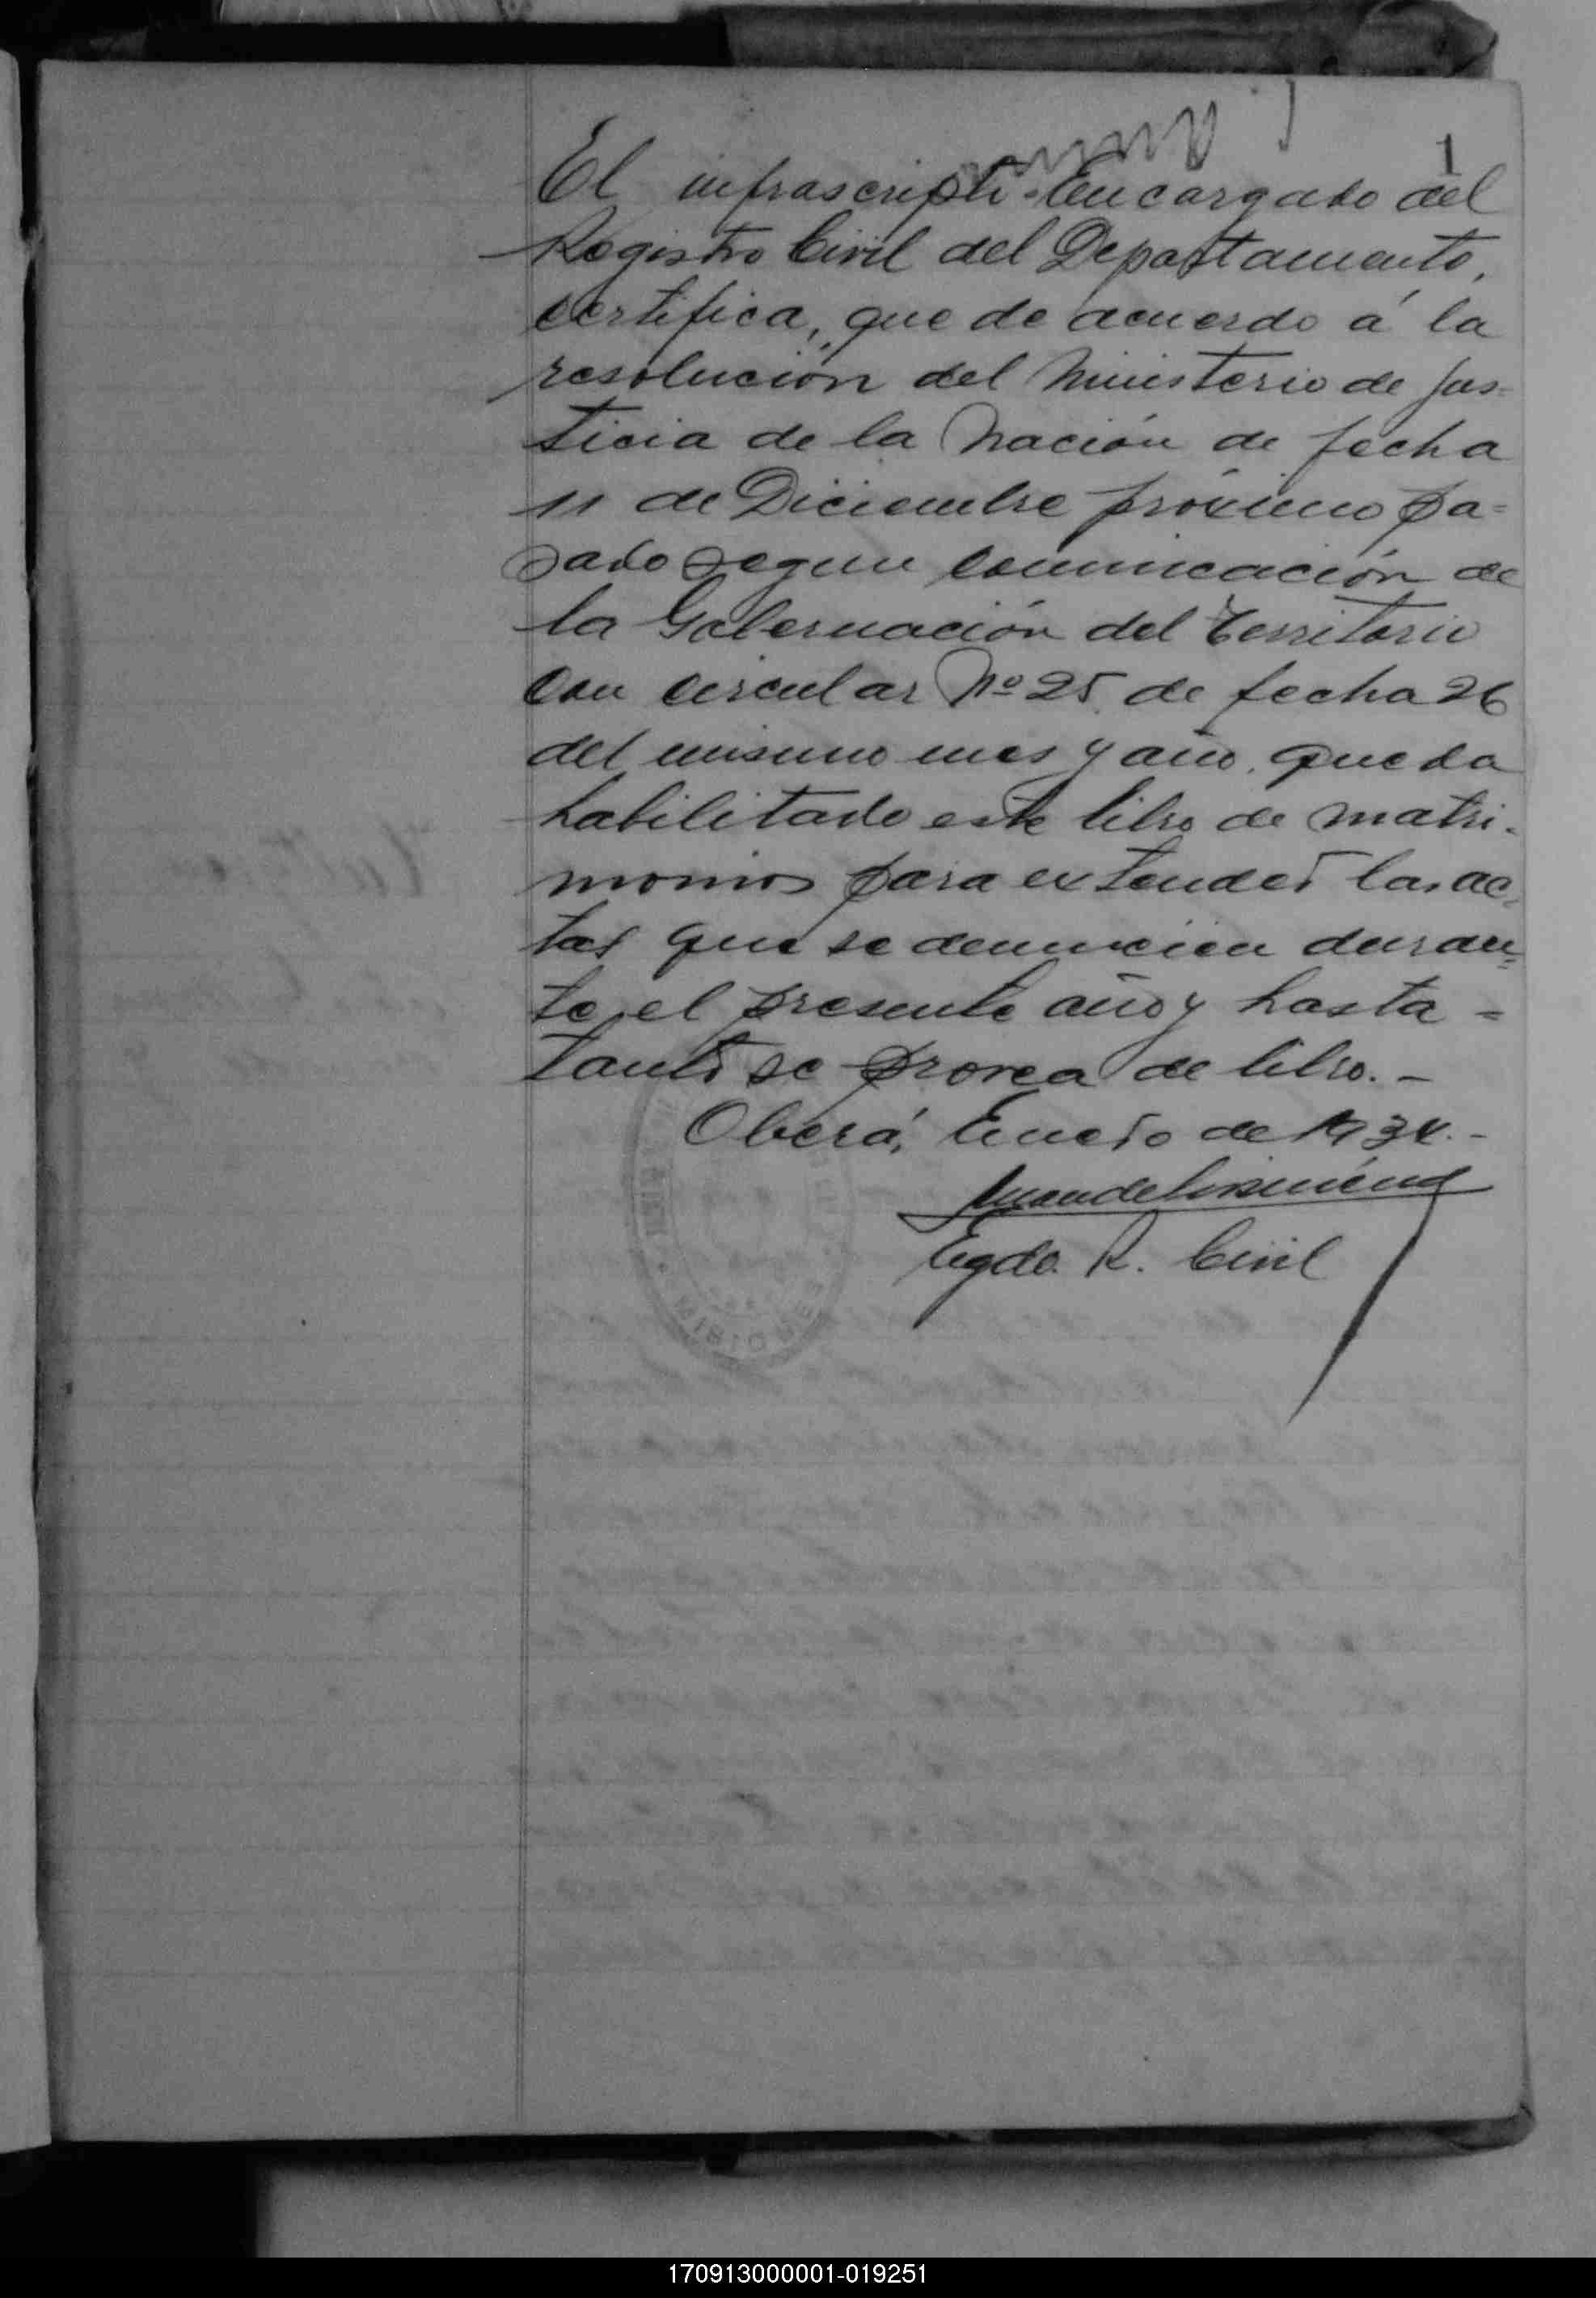 1
El infrascripto Encargado del
Registro Civil del Departamento,
certifica, que de acuerdo á la
resolución del Ministerio de Jus-
ticia de la Nación de fecha
11 de Diciembre próximo pa=
sado segun comunicación de
la Gobernación del Territorio
con circular Nº 25 de fecha 26
del mismo mes y año, queda
habilitado este libro de matri-
monios para extender las ac-
tas que se denuncien duran=
te el presente año y hasta =
tanto se provea de libro. -
Oberá, Enero de 1934. -
Egdo. R. Civil
170913000001-019251